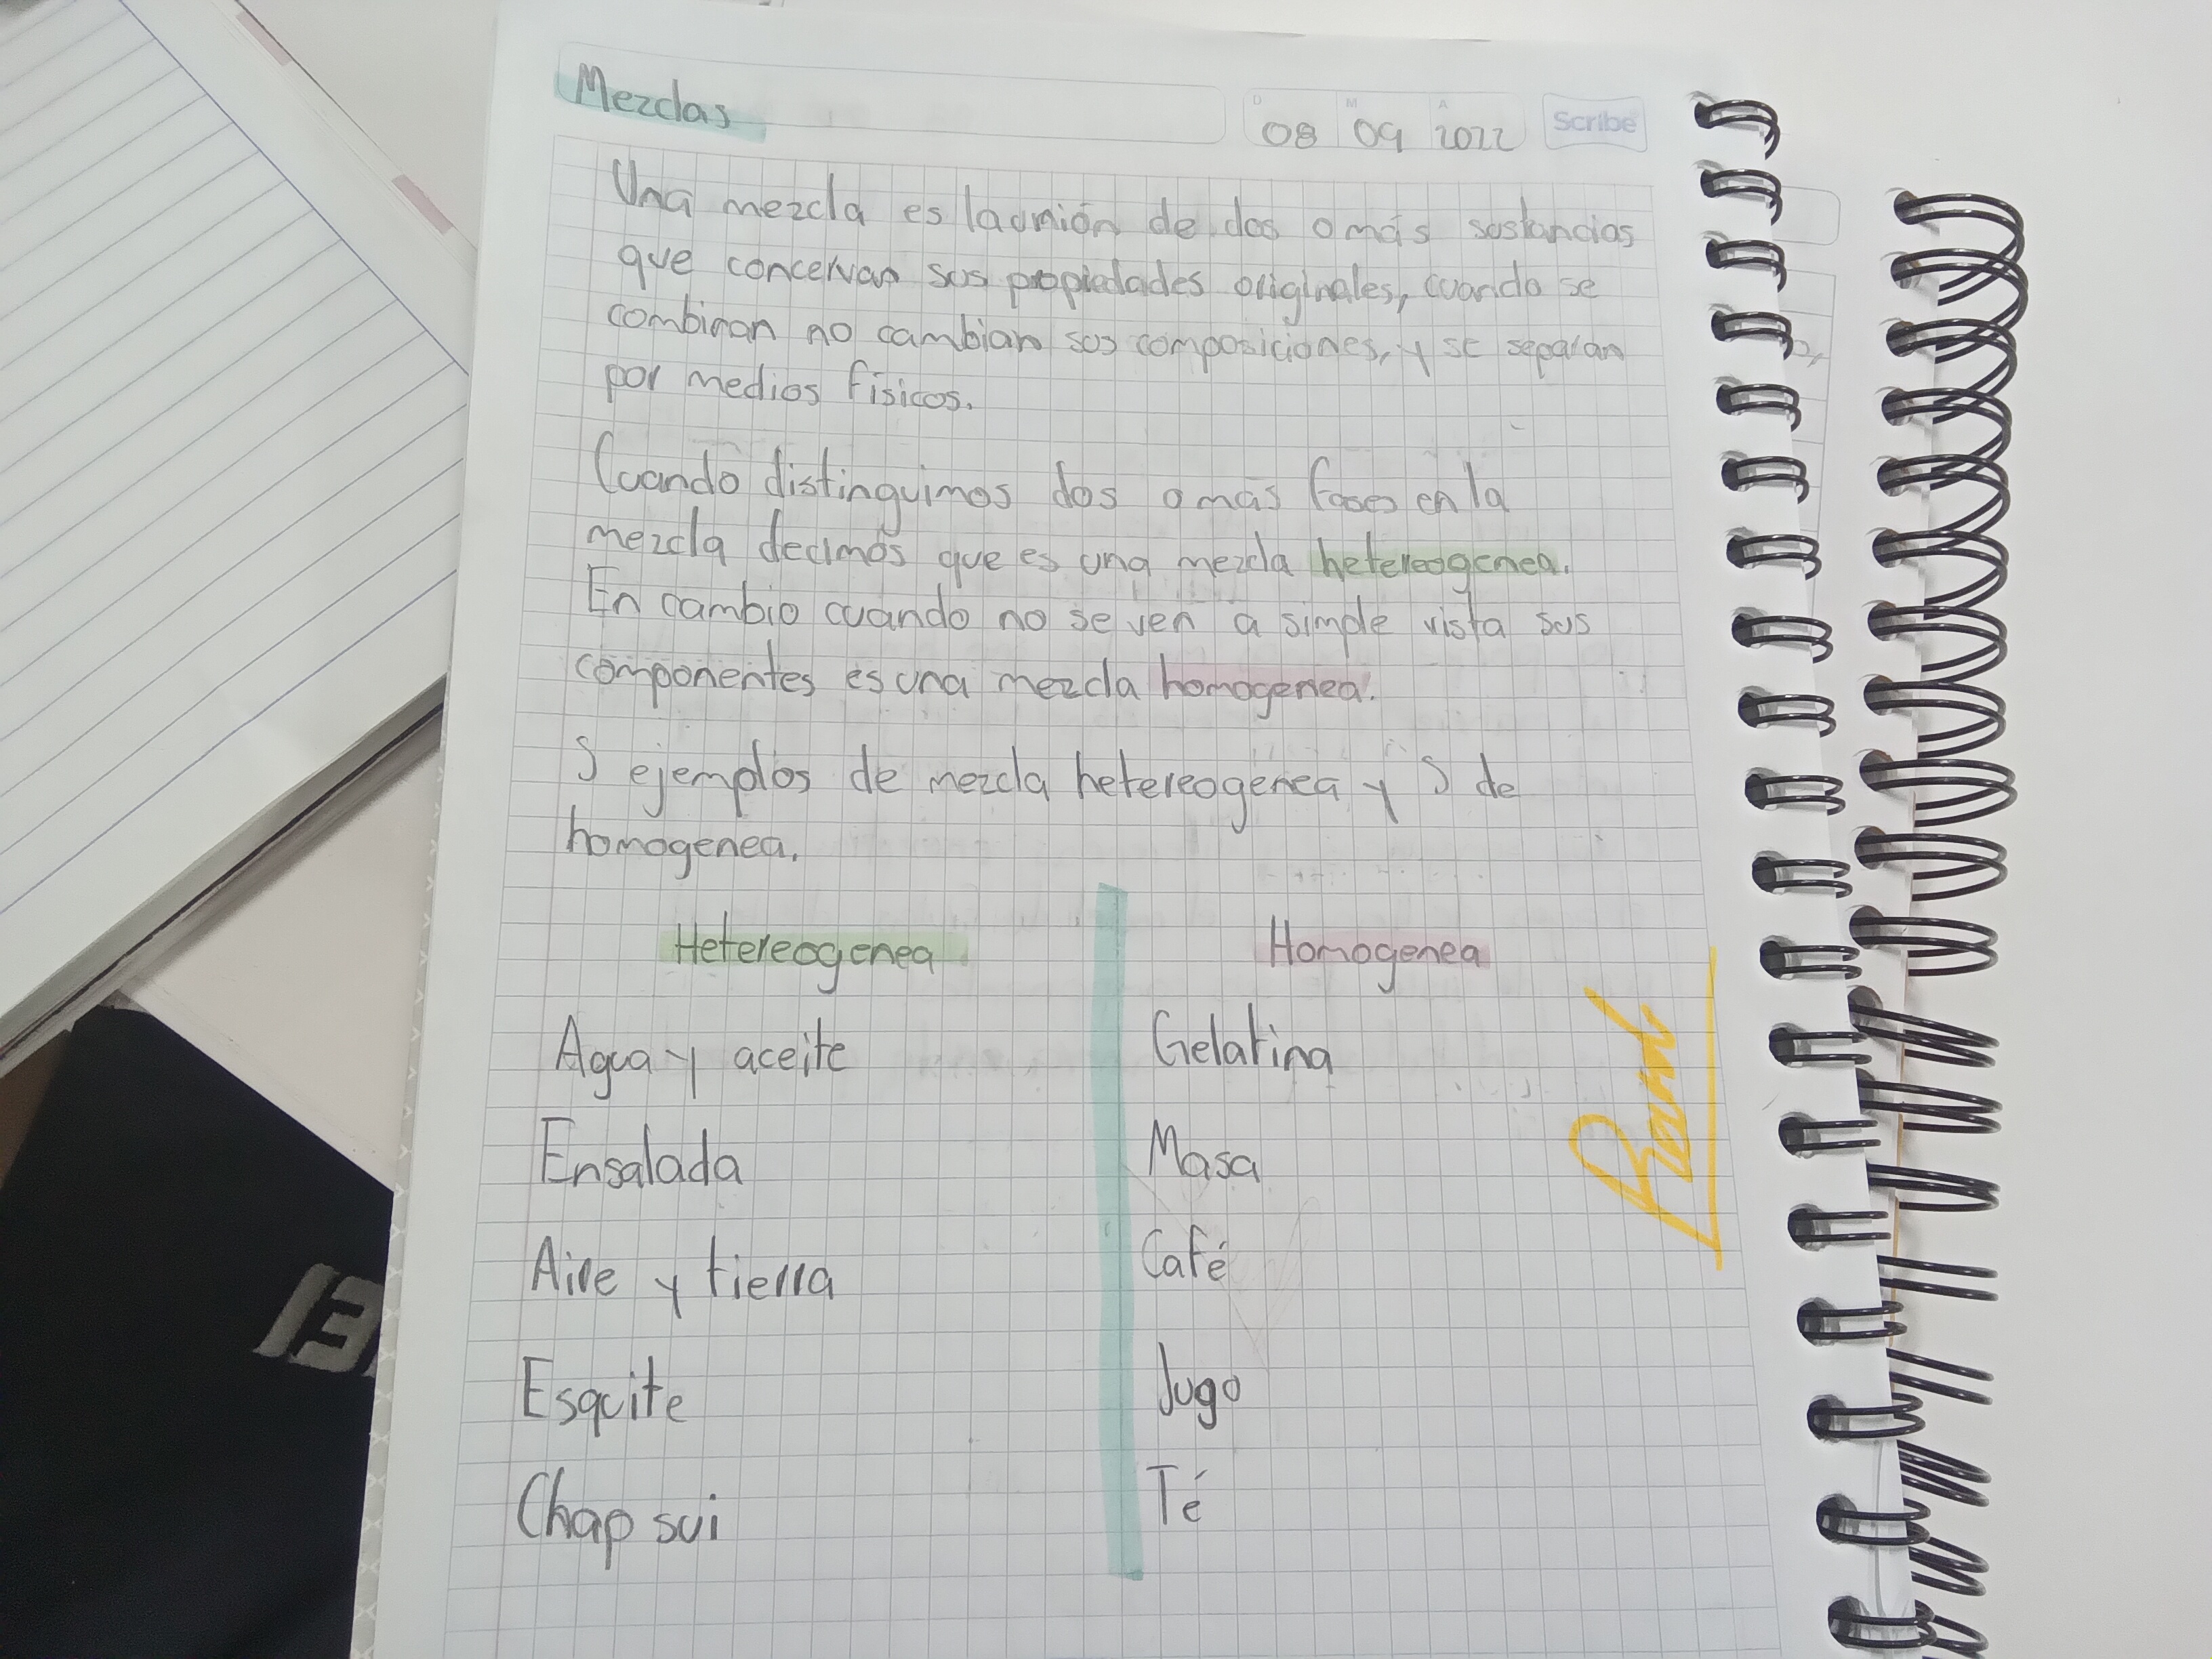 Mezclas
D M A
08 09 2022
Scribe
Una mezcla es la unión de dos o más sustancias
que concervan sus propiedades originales, cuando se
combinan no cambian sus composiciones, y se separan
por medios físicos.
Cuando distinguimos dos o más fases en la
mezcla decimos que es una mezcla hetereogenea.
En cambio cuando no se ven a simple vista sus
componentes es una mezcla homogenea.
5 ejemplos de mezcla hetereogenea y 5 de
homogenea.
Hetereogenea Homogenea
Agua y aceite Gelatina
Ensalada Masa
Aire y tierra Café
Esquite Jugo
Chap sui Té